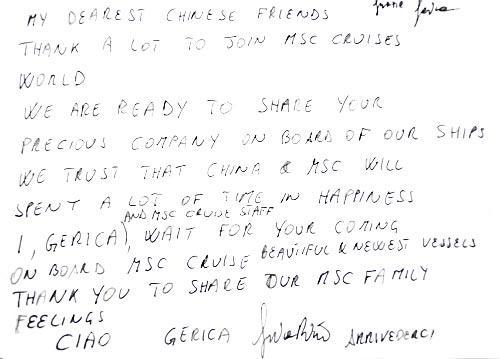 MY DEAREST CHINESE FRIENDS
THANK A LOT TO JOIN MSC CRUISES
WORLD
WE ARE READY TO SHARE YOUR
PRECIOUS COMPANY ON BOARD OF OUR SHIPS
WE TRUST THAT CHINA & MSC WILL
SPENT A LOT OF TIME IN HAPPINESS
AND MSC CRUISE STAFF
I, GERICA), WAIT FOR YOUR COMING
ON BOARD MSC CRUISE BEAUTIFUL & NEWEST VESSELS
THANK YOU TO SHARE OUR MSC FAMILY
FEELINGS
CIAO GERICA ARRIVEDERCI